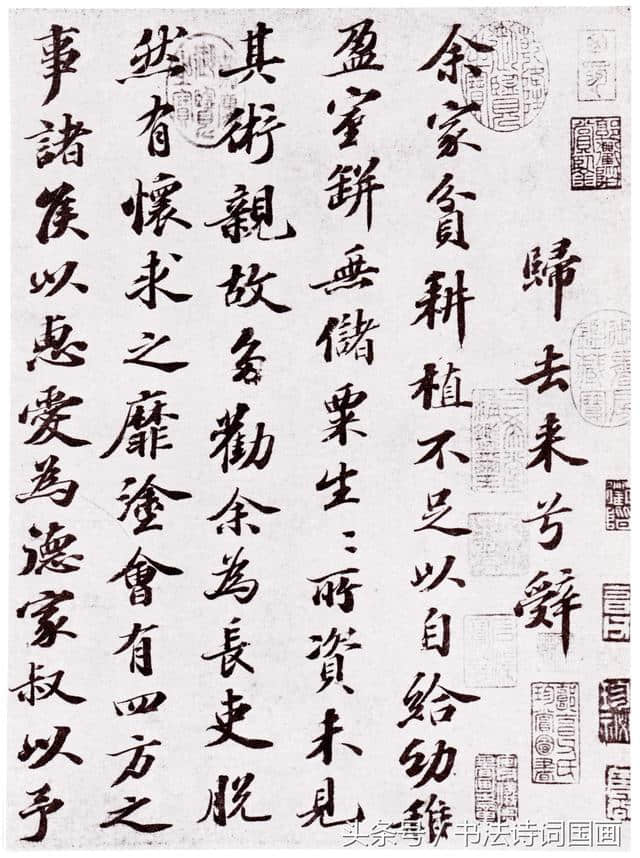 歸去来兮辭
余家貧耕植不足以自給幼稚
盈室缾無儲粟生〻所資未見
其術親故多勸余為長吏脱
然有懷求之靡塗會有四方之
事諸侯以惠愛為德家叔以予
头条号/书法诗词国画